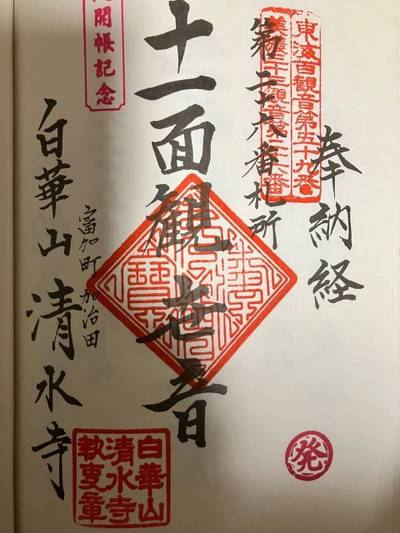 奉納経
東海百観音第五十九番
第二十六番札所
十一面観世音
開帳記念
富加町加治田
白華山清水寺
白華山
清水寺
執事章
発